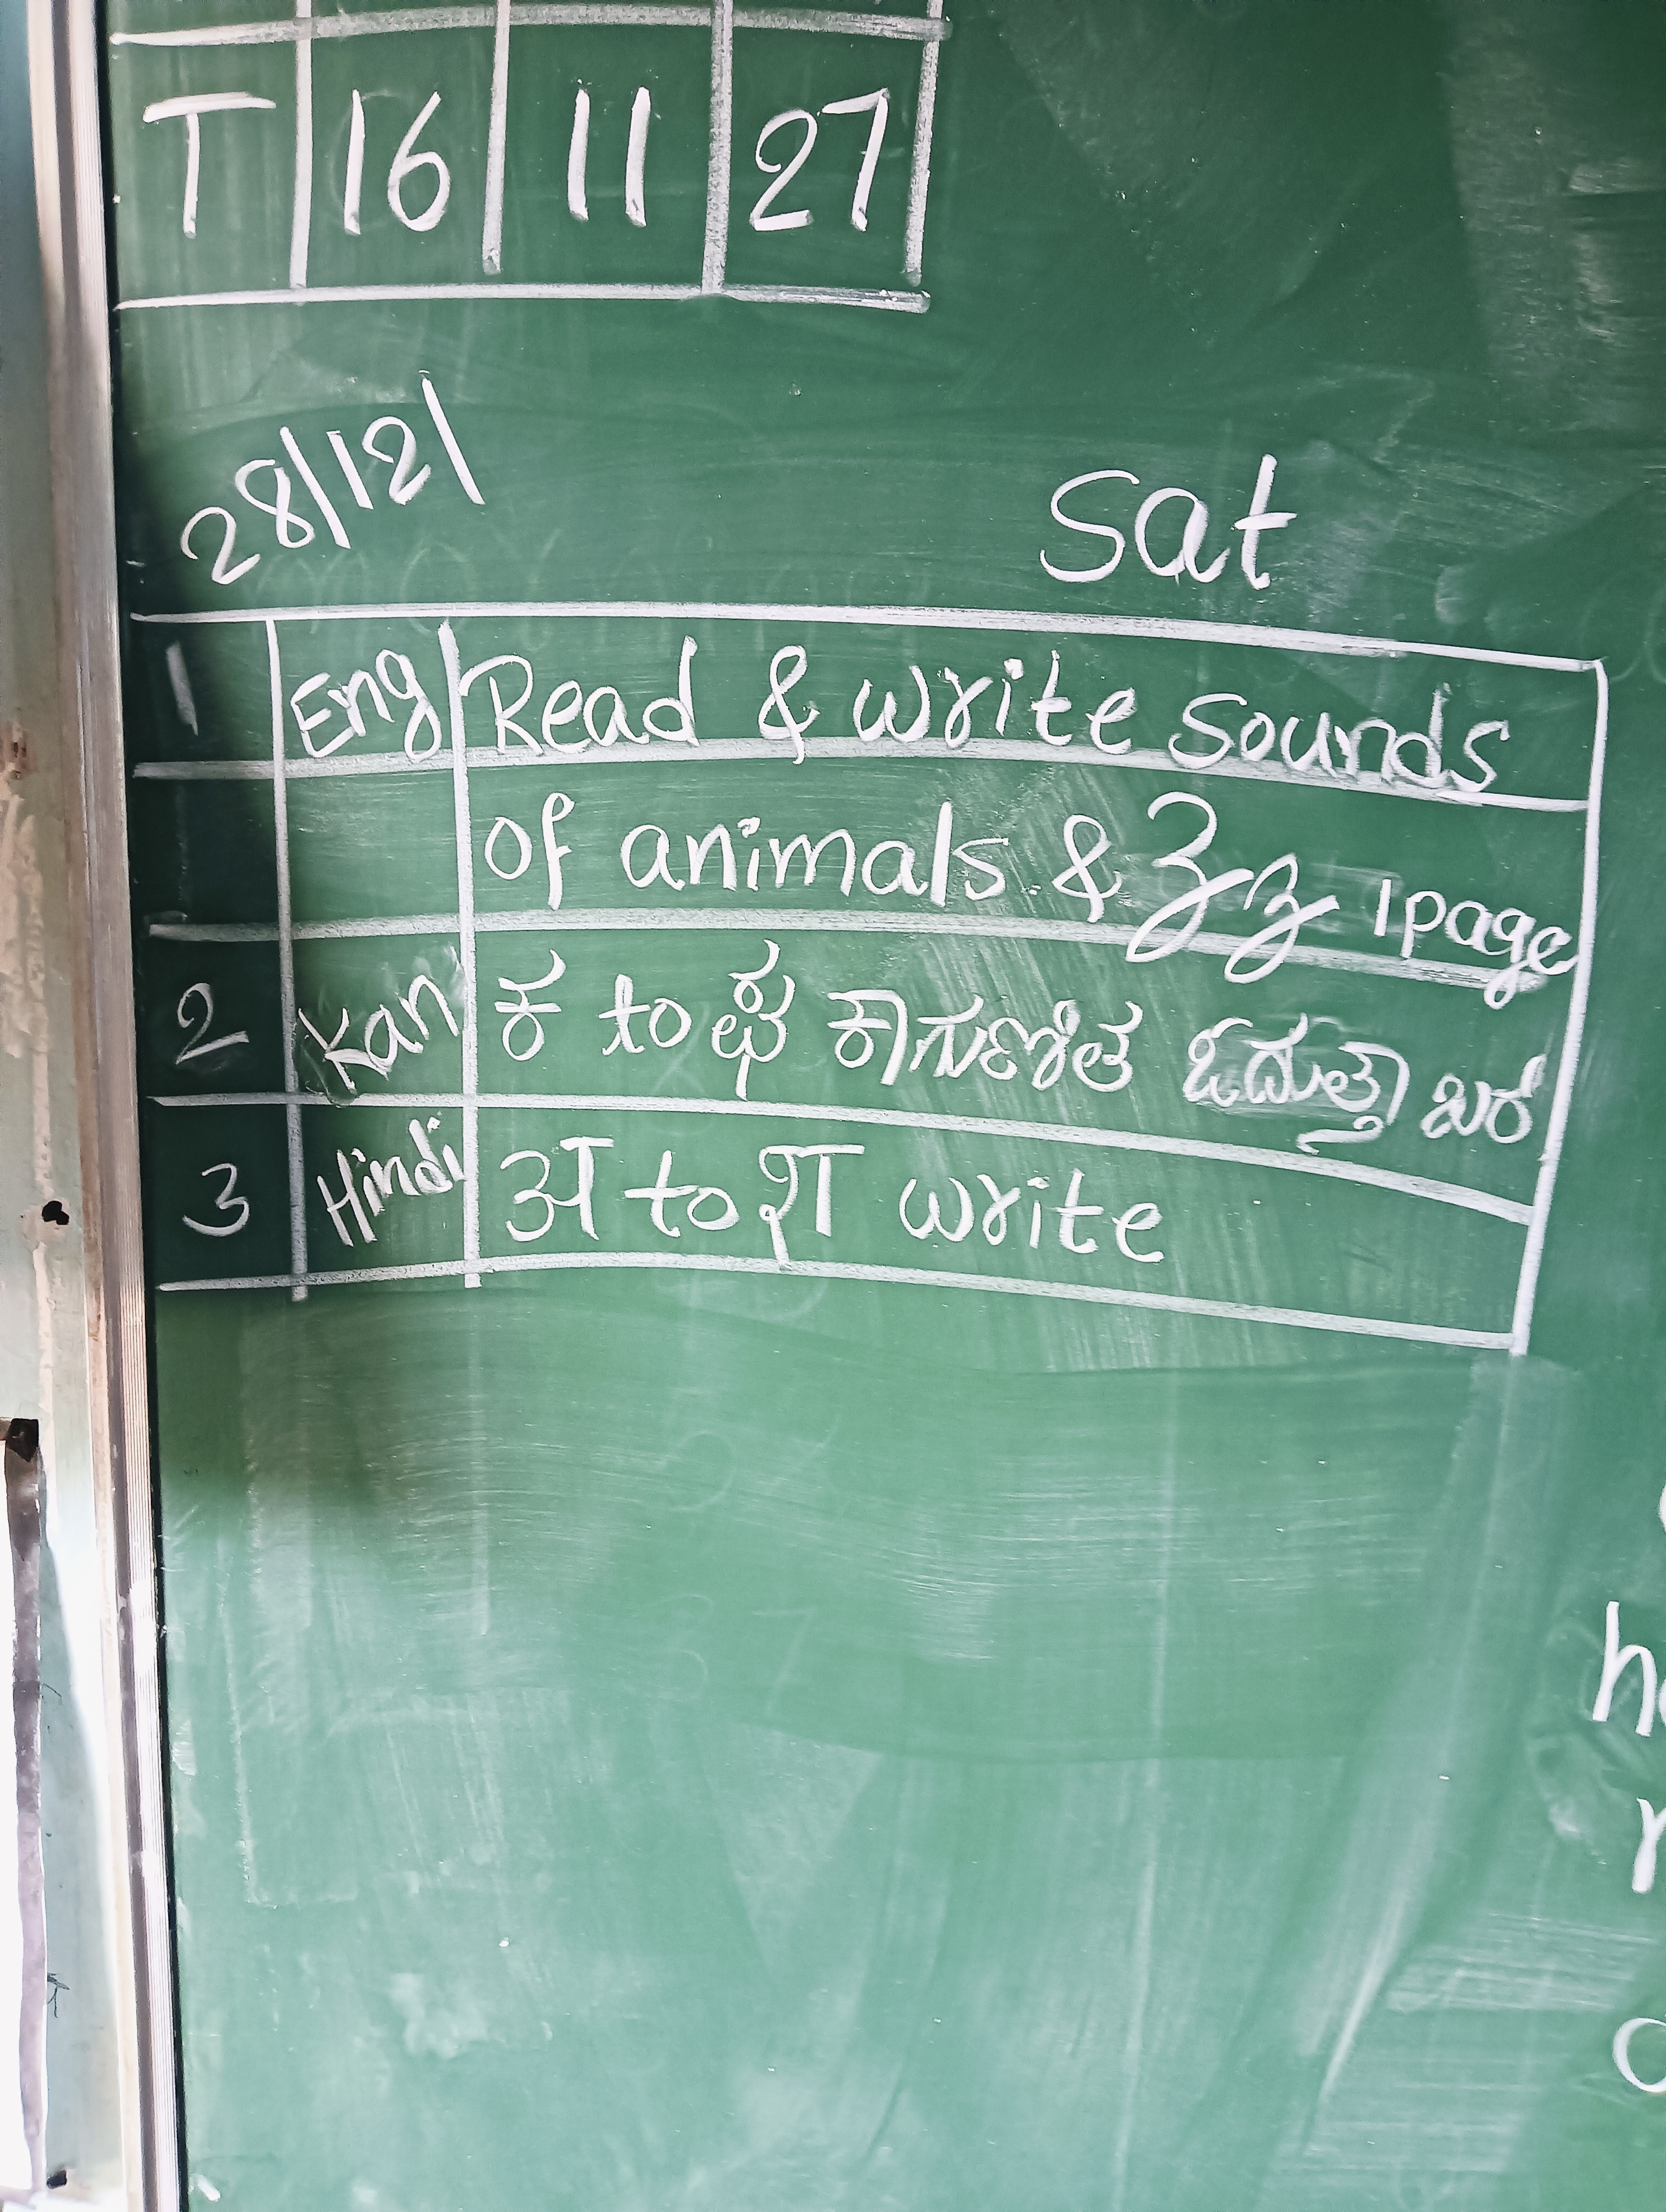 T 16 11 27
28/12/
Sat
1 Eng Read & write sounds
of animals & Zz 1page
2 Kan ಕ to ಛ ಕಾಗುಣಿತ ಓದುತ್ತಾ ಬರೆ
3 Hindi अ to श write